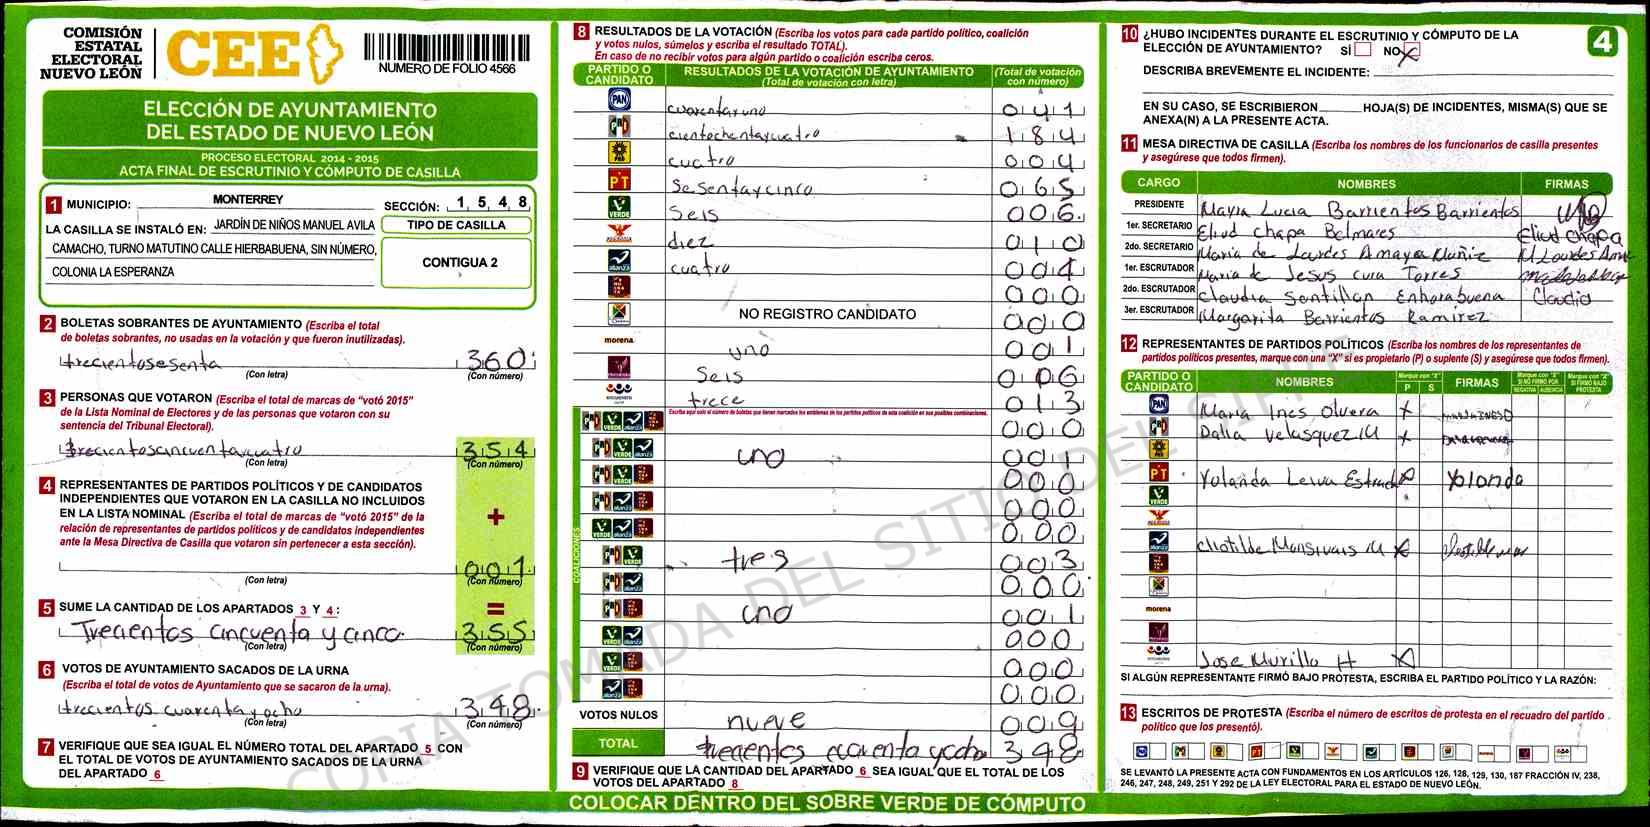 COMISIÓN
ESTATAL
ELECTORAL
NUEVO LEÓN
CEE
NUMERO DE FOLIO 4566
ELECCIÓN DE AYUNTAMIENTO
DEL ESTADO DE NUEVO LEÓN
PROCESO ELECTORAL 2014 - 2015
ACTA FINAL DE ESCRUTINIO Y CÓMPUTO DE CASILLA
1 MUNICIPIO: MONTERREY SECCIÓN: 1 5 4 8
LA CASILLA SE INSTALÓ EN: JARDÍN DE NIÑOS MANUEL AVILA
CAMACHO, TURNO MATUTINO CALLE HIERBABUENA, SIN NÚMERO,
COLONIA LA ESPERANZA
TIPO DE CASILLA
CONTIGUA 2
2 BOLETAS SOBRANTES DE AYUNTAMIENTO (Escriba el total
de boletas sobrantes, no usadas en la votación y que fueron inutilizadas).
trecientosesenta 360
(Con letra) (Con número)
3 PERSONAS QUE VOTARON (Escriba el total de marcas de "votó 2015"
de la Lista Nominal de Electores y de las personas que votaron con su
sentencia del Tribunal Electoral).
trecientoscincuentaycuatro 354
(Con letra) (Con número)
4 REPRESENTANTES DE PARTIDOS POLÍTICOS Y DE CANDIDATOS
INDEPENDIENTES QUE VOTARON EN LA CASILLA NO INCLUIDOS
EN LA LISTA NOMINAL (Escriba el total de marcas de "votó 2015" de la
relación de representantes de partidos políticos y de candidatos independientes
ante la Mesa Directiva de Casilla que votaron sin pertenecer a esta sección).
+
001
(Con letra) (Con número)
=
5 SUME LA CANTIDAD DE LOS APARTADOS 3 Y 4:
Trecientos cincuenta y cinco. 355
(Con letra) (Con número)
6 VOTOS DE AYUNTAMIENTO SACADOS DE LA URNA
(Escriba el total de votos de Ayuntamiento que se sacaron de la urna).
trecientos cuarenta y ocho 348
(Con letra) (Con número)
7 VERIFIQUE QUE SEA IGUAL EL NÚMERO TOTAL DEL APARTADO 5 CON
EL TOTAL DE VOTOS DE AYUNTAMIENTO SACADOS DE LA URNA
DEL APARTADO 6
8 RESULTADOS DE LA VOTACIÓN (Escriba los votos para cada partido político, coalición
y votos nulos, súmelos y escriba el resultado TOTAL).
En caso de no recibir votos para algún partido o coalición escriba ceros.
PARTIDO O CANDIDATO RESULTADOS DE LA VOTACIÓN DE AYUNTAMIENTO (Total de votación con letra) (Total de votación con número)
PAN cuarentayuno 041
PRD cientochentaycuatro 184
cuatro 004
PT sesentaycinco 065
VERDE Seis 006
diez 010
alianza cuatro 004
000
NO REGISTRO CANDIDATO 000
morena uno 001
Seis 006
trece 013
Escriba aquí solo el número de boletas que tienen marcados los emblemas de los partidos políticos de esta coalición en sus posibles combinaciones.
COALICIONES
000
uno 001
000
000
000
tres 003
000
uno 001
000
000
000
VOTOS NULOS nueve 009
TOTAL trecientos cuarenta yocho 348
9 VERIFIQUE QUE LA CANTIDAD DEL APARTADO 6 SEA IGUAL QUE EL TOTAL DE LOS
VOTOS DEL APARTADO 8
COLOCAR DENTRO DEL SOBRE VERDE DE CÓMPUTO
4
10 ¿HUBO INCIDENTES DURANTE EL ESCRUTINIO Y CÓMPUTO DE LA
ELECCIÓN DE AYUNTAMIENTO? SÍ NO X
DESCRIBA BREVEMENTE EL INCIDENTE:
EN SU CASO, SE ESCRIBIERON HOJA(S) DE INCIDENTES, MISMA(S) QUE SE
ANEXA(N) A LA PRESENTE ACTA.
11 MESA DIRECTIVA DE CASILLA (Escriba los nombres de los funcionarios de casilla presentes
y asegúrese que todos firmen).
CARGO NOMBRES FIRMAS
PRESIDENTE Mayra Lucia Barrientos Barrientos
1er. SECRETARIO Eliud Chapa Belmares Eliud Chapa
2do. SECRETARIO Maria de Lourdes Amaya Muñiz M Lourdes
1er. ESCRUTADOR Maria de Jesus cura Torres
2do. ESCRUTADOR Claudia Santillan Enhorabuena Claudia
3er. ESCRUTADOR Margarita Barrientos Ramirez
12 REPRESENTANTES DE PARTIDOS POLÍTICOS (Escriba los nombres de los representantes de
partidos políticos presentes, marque con una "X" si es propietario (P) o suplente (S) y asegúrese que todos firmen).
PARTIDO O CANDIDATO NOMBRES Marque con "X" P S FIRMAS Marque con "X" SI NO FIRMÓ POR NEGATIVA AUSENCIA Marque con "X" SI FIRMÓ BAJO PROTESTA
PAN Maria Ines Olvera X
Dalia Velasquez M X
PT Yolanda Leiva Estrada X Yolanda
VERDE
alianza Clotilde Monsivais M X
morena
Jose Murillo H X
SI ALGÚN REPRESENTANTE FIRMÓ BAJO PROTESTA, ESCRIBA EL PARTIDO POLÍTICO Y LA RAZÓN:
13 ESCRITOS DE PROTESTA (Escriba el número de escritos de protesta en el recuadro del partido
político que los presentó).
SE LEVANTÓ LA PRESENTE ACTA CON FUNDAMENTOS EN LOS ARTÍCULOS 126, 128, 129, 130, 187 FRACCIÓN IV, 238,
246, 247, 248, 249, 251 Y 292 DE LA LEY ELECTORAL PARA EL ESTADO DE NUEVO LEÓN.
COPIA TOMADA DEL SITIO DEL